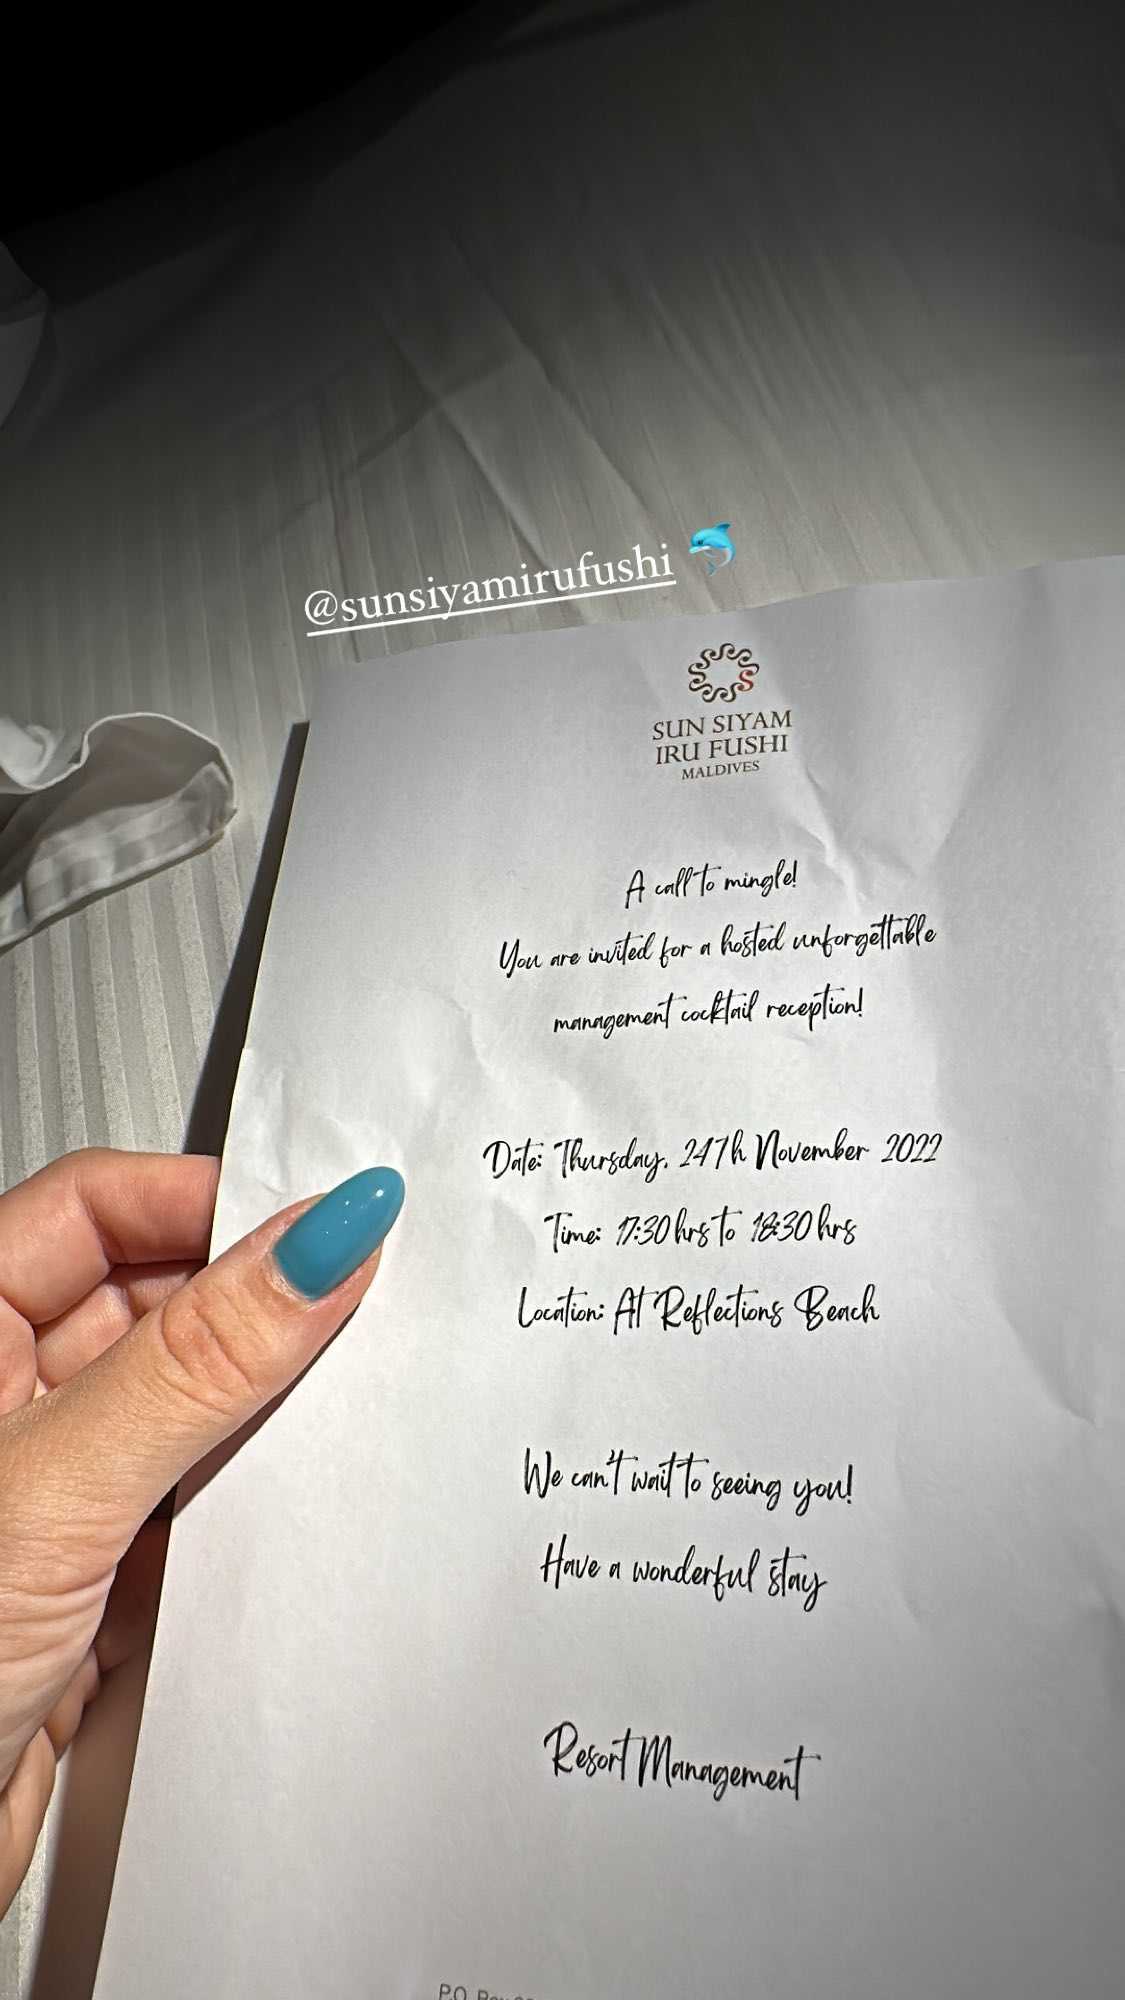 @sunsiyamirufushi 🐬
SUN SIYAM
IRU FUSHI
MALDIVES
A call to mingle!
You are invited for a hosted unforgettable
management cocktail reception!
Date: Thursday, 24Th November 2022
Time: 17:30 hrs to 18:30 hrs
Location: At Reflections Beach
We can't wait to seeing you!
Have a wonderful stay
Resort Management
P.O.